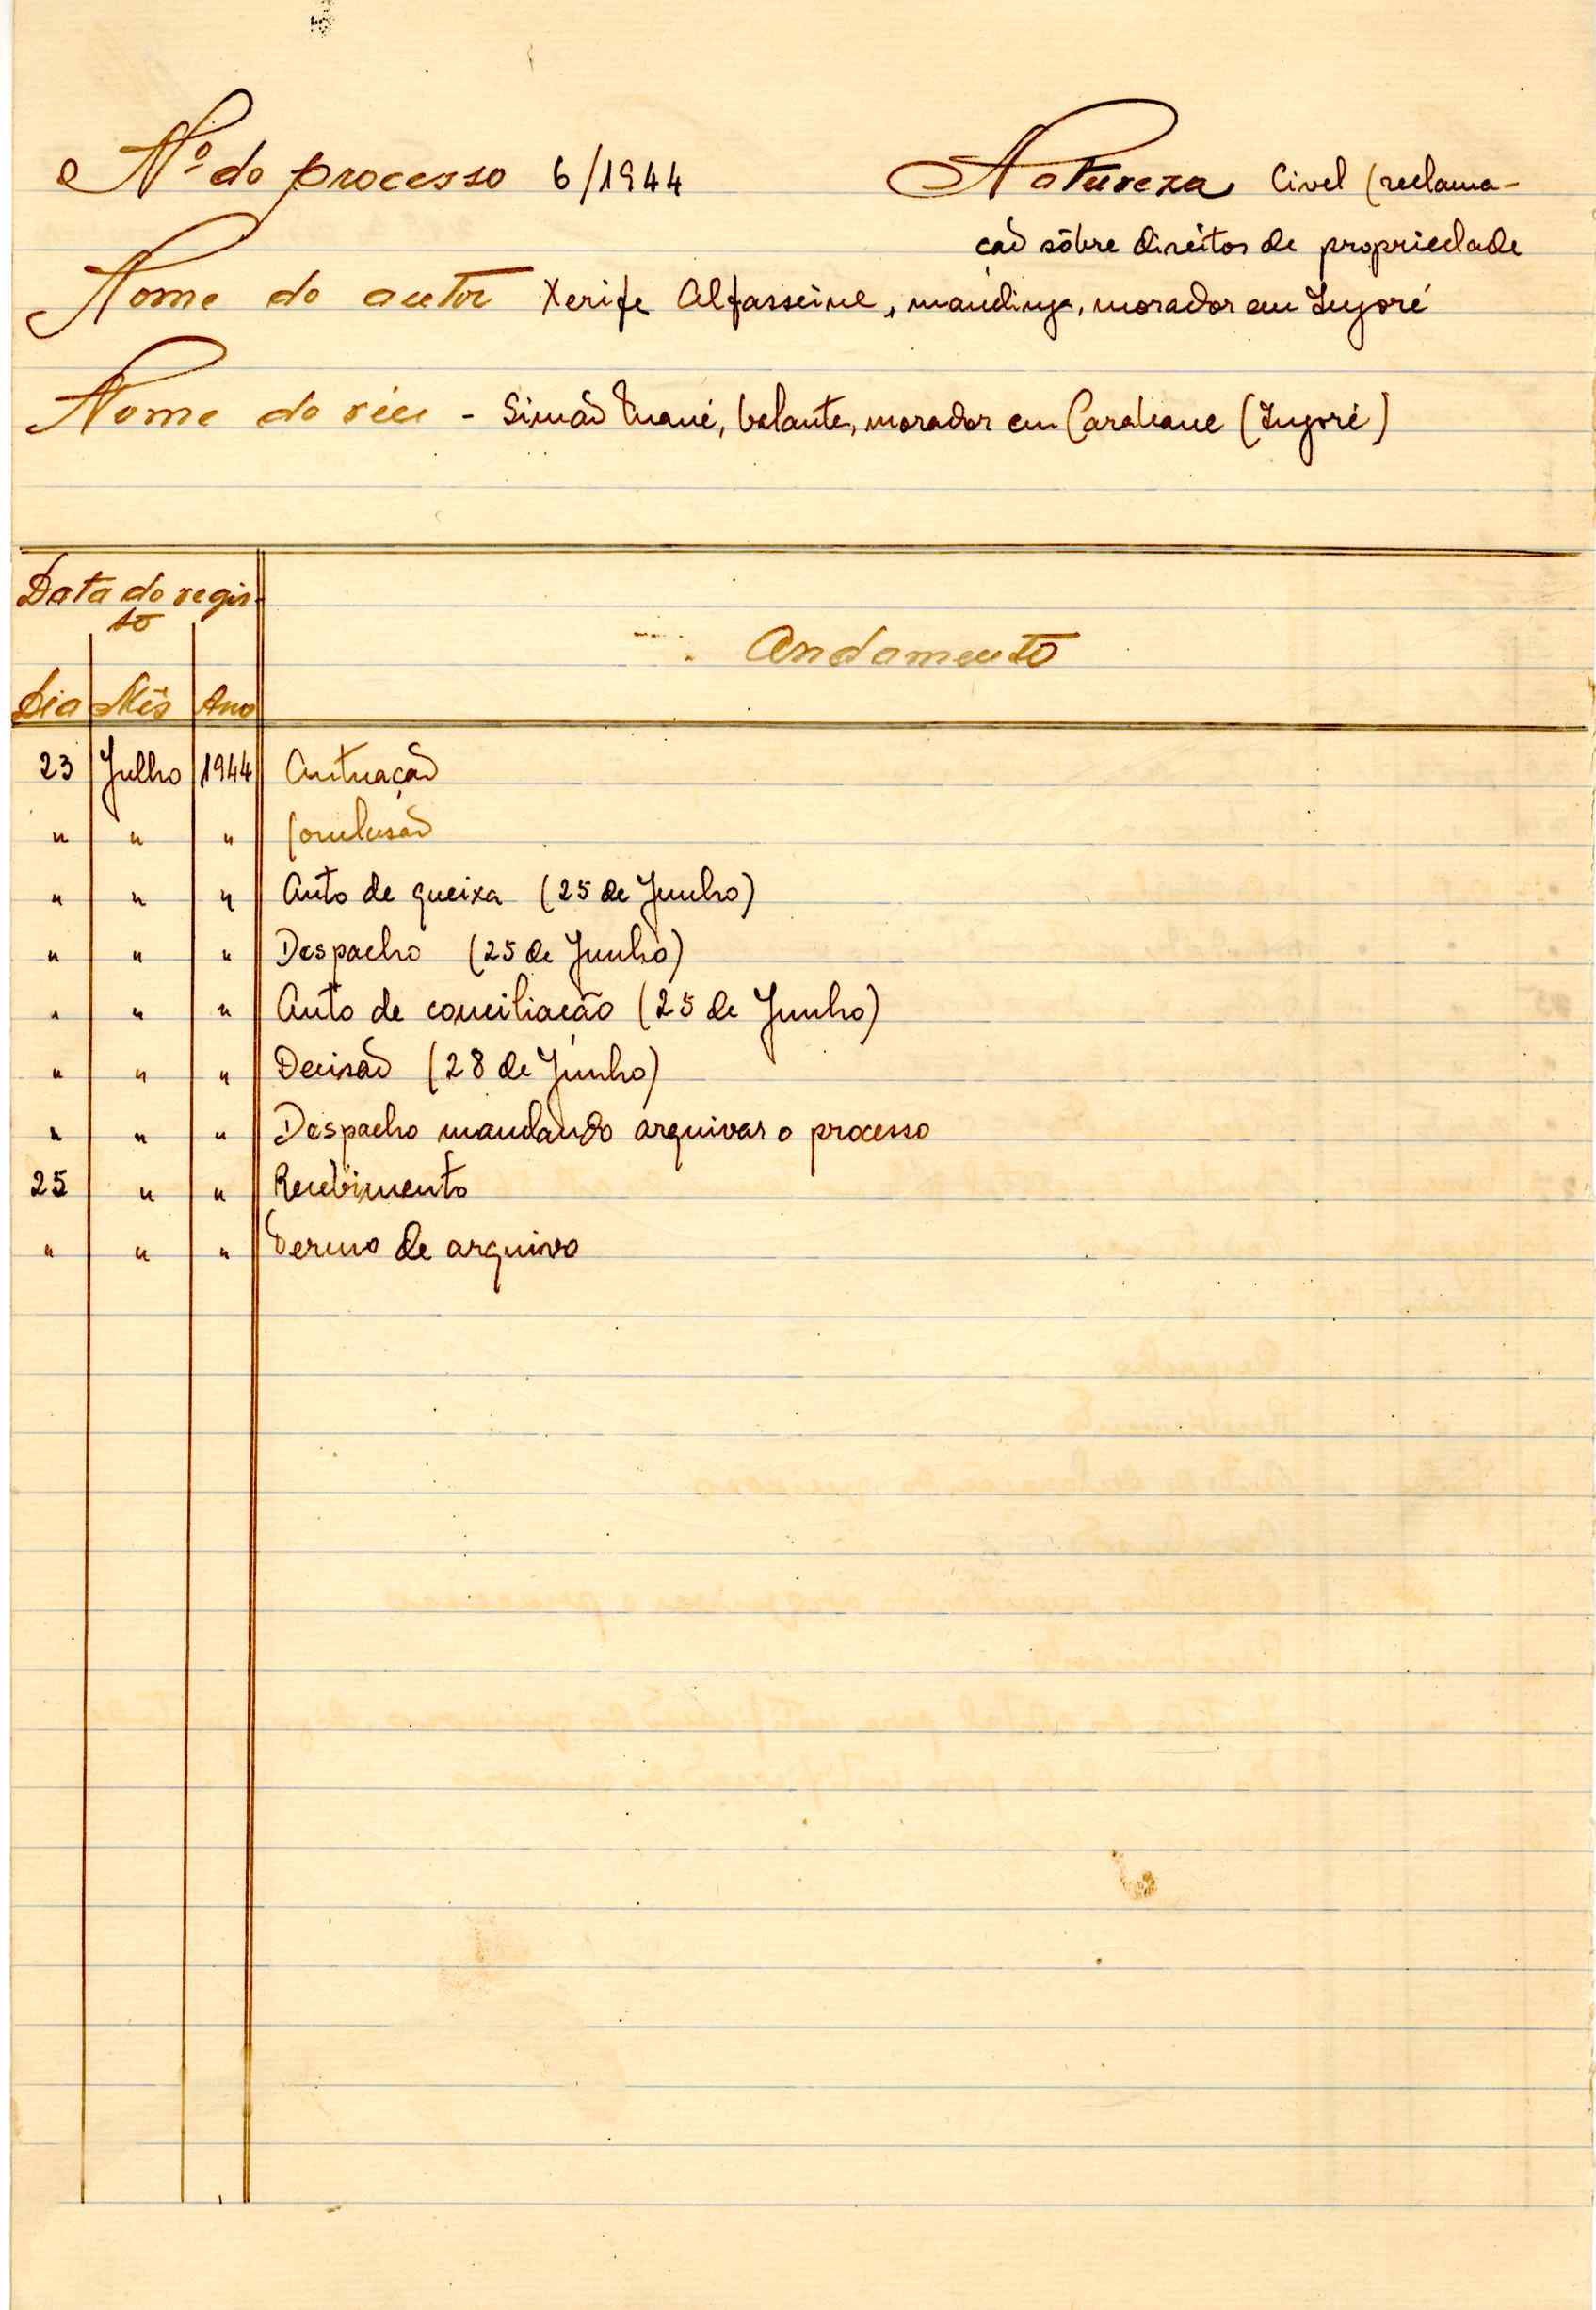 Nº do processo 6/1944 Natureza Civel (reclama-
ção sôbre direitos de propriedade
Nome do autor Xerife Alfasseine, mandinga, morador em Ingoré
Nome do réu - Simão, balante, morador em (Ingoré)
Data do regis-
to
Andamento
Dia Mês Ano
23 Julho 1944 Autuação
" " " Conclusão
" " " Auto de queixa (25 de Junho)
" " " Despacho (25 de Junho)
" " " Auto de conciliação (25 de Junho)
" " " Decisão (28 de Junho)
" " " Despacho mandando arquivar o processo
25 " " Recebimento
" " " Termo de arquivo